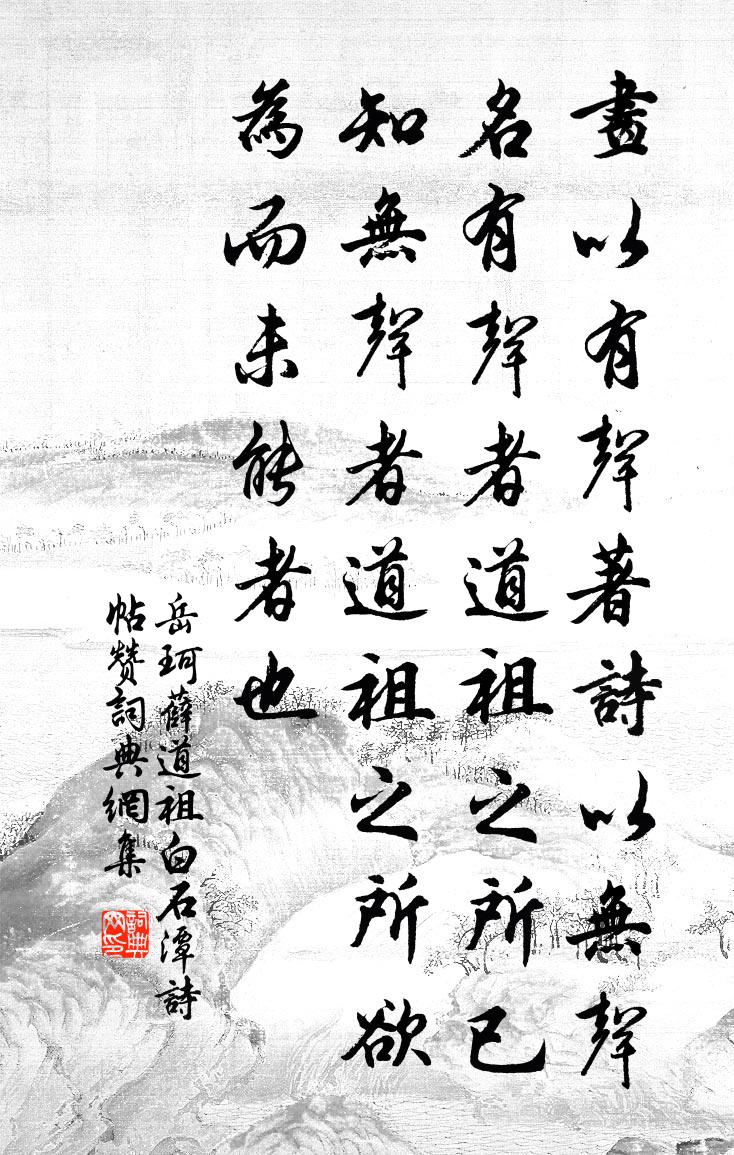 畫以有聲著詩以無聲
名有聲者道祖之所已
知無聲者道祖之所欲
為而未能者也
岳珂薛道祖白石潭詩
帖贊詞典網集
詞典網印